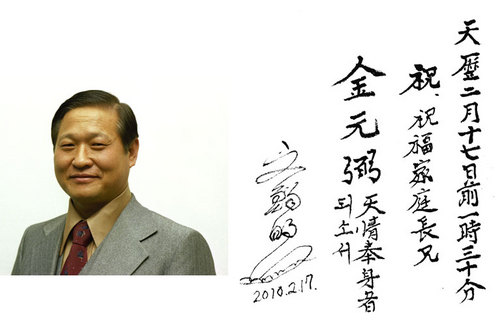 天曆二月十七日前一時三十分
祝、祝福家庭長兄
金元弼 天情奉身者
되소서
文鮮明
2010.2.17.